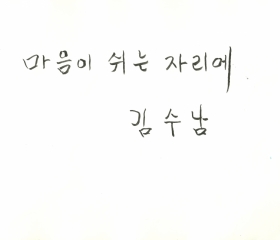 마음이 쉬는 자리에
김수남